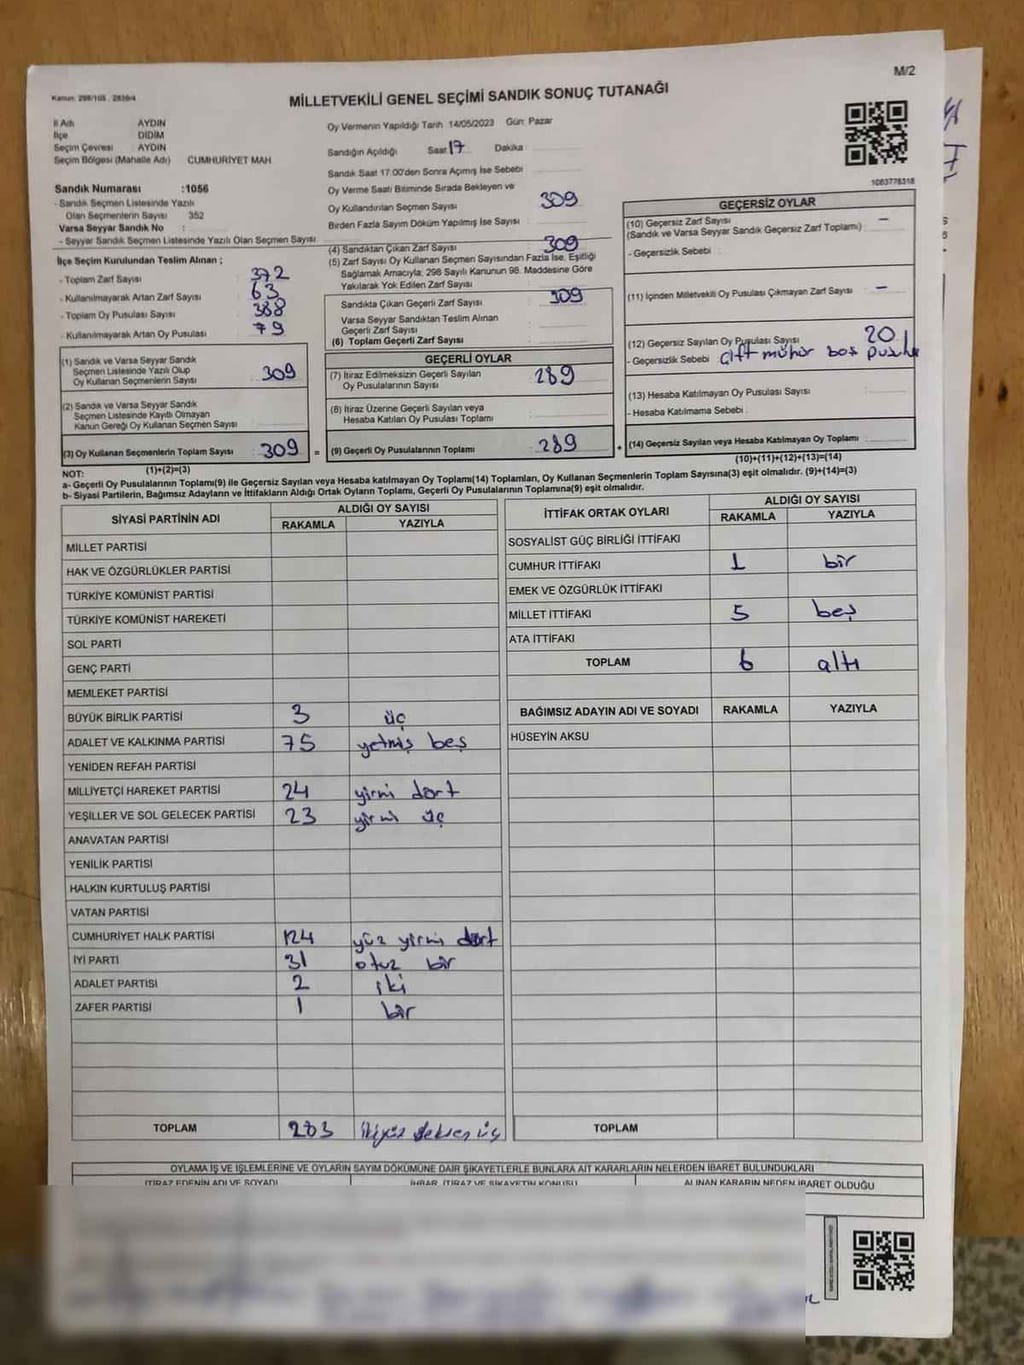 Kanun: 298/105 , 2839/4
M/2
MİLLETVEKİLİ GENEL SEÇİMİ SANDIK SONUÇ TUTANAĞI
İl Adı AYDIN
İlçe DİDİM
Seçim Çevresi AYDIN
Seçim Bölgesi (Mahalle Adı) CUMHURİYET MAH
Sandık Numarası :1056
- Sandık Seçmen Listesinde Yazılı
Olan Seçmenlerin Sayısı 352
Varsa Seyyar Sandık No :
- Seyyar Sandık Seçmen Listesinde Yazılı Olan Seçmen Sayısı
İlçe Seçim Kurulundan Teslim Alınan ;
- Toplam Zarf Sayısı 372
- Kullanılmayarak Artan Zarf Sayısı 63
- Toplam Oy Pusulası Sayısı 388
- Kullanılmayarak Artan Oy Pusulası 79
(1) Sandık ve Varsa Seyyar Sandık
Seçmen Listesinde Yazılı Olup
Oy Kullanan Seçmenlerin Sayısı 309
(2) Sandık ve Varsa Seyyar Sandık
Seçmen Listesinde Kayıtlı Olmayan
Kanun Gereği Oy Kullanan Seçmen Sayısı
(3) Oy Kullanan Seçmenlerin Toplam Sayısı 309
(1)+(2)=(3)
Oy Vermenin Yapıldığı Tarih 14/05/2023 Gün: Pazar
Sandığın Açıldığı Saat 17 Dakika
Sandık Saat 17:00'den Sonra Açımış İse Sebebi
Oy Verme Saati Bitiminde Sırada Bekleyen ve
Oy Kullandırılan Seçmen Sayısı 309
Birden Fazla Sayım Döküm Yapılmış İse Sayısı
(4) Sandıktan Çıkan Zarf Sayısı 309
(5) Zarf Sayısı Oy Kullanan Seçmen Sayısından Fazla İse, Eşitliği
Sağlamak Amacıyla, 298 Sayılı Kanunun 98. Maddesine Göre
Yakılarak Yok Edilen Zarf Sayısı
Sandıkta Çıkan Geçerli Zarf Sayısı 309
Varsa Seyyar Sandıktan Teslim Alınan
Geçerli Zarf Sayısı
(6) Toplam Geçerli Zarf Sayısı
GEÇERLİ OYLAR
(7) İtiraz Edilmeksizin Geçerli Sayılan
Oy Pusulalarının Sayısı 289
(8) İtiraz Üzerine Geçerli Sayılan veya
Hesaba Katılan Oy Pusulası Toplamı
= (9) Geçerli Oy Pusulalarının Toplamı 289 +
1083778318
GEÇERSİZ OYLAR
(10) Geçersiz Zarf Sayısı –
(Sandık ve Varsa Seyyar Sandık Geçersiz Zarf Toplamı)
- Geçersizlik Sebebi
(11) İçinden Milletvekili Oy Pusulası Çıkmayan Zarf Sayısı –
(12) Geçersiz Sayılan Oy Pusulası Sayısı 20
- Geçersizlik Sebebi çift mühür boş pusula
(13) Hesaba Katılmayan Oy Pusulası Sayısı
- Hesaba Katılmama Sebebi
(14) Geçersiz Sayılan veya Hesaba Katılmayan Oy Toplamı
(10)+(11)+(12)+(13)=(14)
NOT:
a- Geçerli Oy Pusulalarının Toplamı(9) ile Geçersiz Sayılan veya Hesaba katılmayan Oy Toplamı(14) Toplamları, Oy Kullanan Seçmenlerin Toplam Sayısına(3) eşit olmalıdır. (9)+(14)=(3)
b- Siyasi Partilerin, Bağımsız Adayların ve İttifakların Aldığı Ortak Oyların Toplamı, Geçerli Oy Pusulalarının Toplamına(9) eşit olmalıdır.
SİYASİ PARTİNİN ADI ALDIĞI OY SAYISI
RAKAMLA YAZIYLA
MİLLET PARTİSİ
HAK VE ÖZGÜRLÜKLER PARTİSİ
TÜRKİYE KOMÜNİST PARTİSİ
TÜRKİYE KOMÜNİST HAREKETİ
SOL PARTİ
GENÇ PARTİ
MEMLEKET PARTİSİ
BÜYÜK BİRLİK PARTİSİ 3 üç
ADALET VE KALKINMA PARTİSİ 75 yetmiş beş
YENİDEN REFAH PARTİSİ
MİLLİYETÇİ HAREKET PARTİSİ 24 yirmi dört
YEŞİLLER VE SOL GELECEK PARTİSİ 23 yirmi üç
ANAVATAN PARTİSİ
YENİLİK PARTİSİ
HALKIN KURTULUŞ PARTİSİ
VATAN PARTİSİ
CUMHURİYET HALK PARTİSİ 124 yüz yirmi dört
İYİ PARTİ 31 otuz bir
ADALET PARTİSİ 2 iki
ZAFER PARTİSİ 1 bir
TOPLAM 283 ikiyüz seksen üç
İTTİFAK ORTAK OYLARI ALDIĞI OY SAYISI
RAKAMLA YAZIYLA
SOSYALİST GÜÇ BİRLİĞİ İTTİFAKI
CUMHUR İTTİFAKI 1 bir
EMEK VE ÖZGÜRLÜK İTTİFAKI
MİLLET İTTİFAKI 5 beş
ATA İTTİFAKI
TOPLAM 6 altı
BAĞIMSIZ ADAYIN ADI VE SOYADI RAKAMLA YAZIYLA
HÜSEYİN AKSU
TOPLAM
OYLAMA İŞ VE İŞLEMLERİNE VE OYLARIN SAYIM DÖKÜMÜNE DAİR ŞİKAYETLERLE BUNLARA AİT KARARLARIN NELERDEN İBARET BULUNDUKLARI
İTİRAZ EDENİN ADI VE SOYADI İHBAR, İTİRAZ VE ŞİKAYETİN KONUSU ALINAN KARARIN NEDEN İBARET OLDUĞU